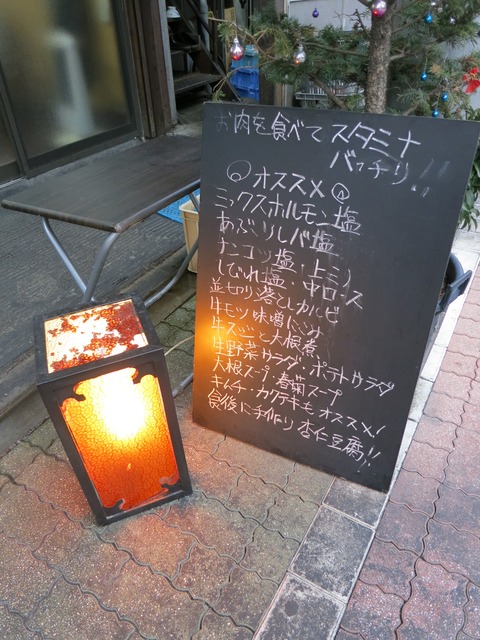 お肉を食べてスタミナ
バッチリ!!
オススメ
ミックスホルモン塩
あぶりレバ塩
ナンコツ塩・上ミノ
しびれ塩・中ロース
並切り落としカルビ
牛モツ味噌にこみ
牛スジと大根煮
生野菜サラダ・ポテトサラダ
大根スープ・春菊スープ
キムチ・カクテキもオススメ!
食後に手作り杏仁豆腐!!